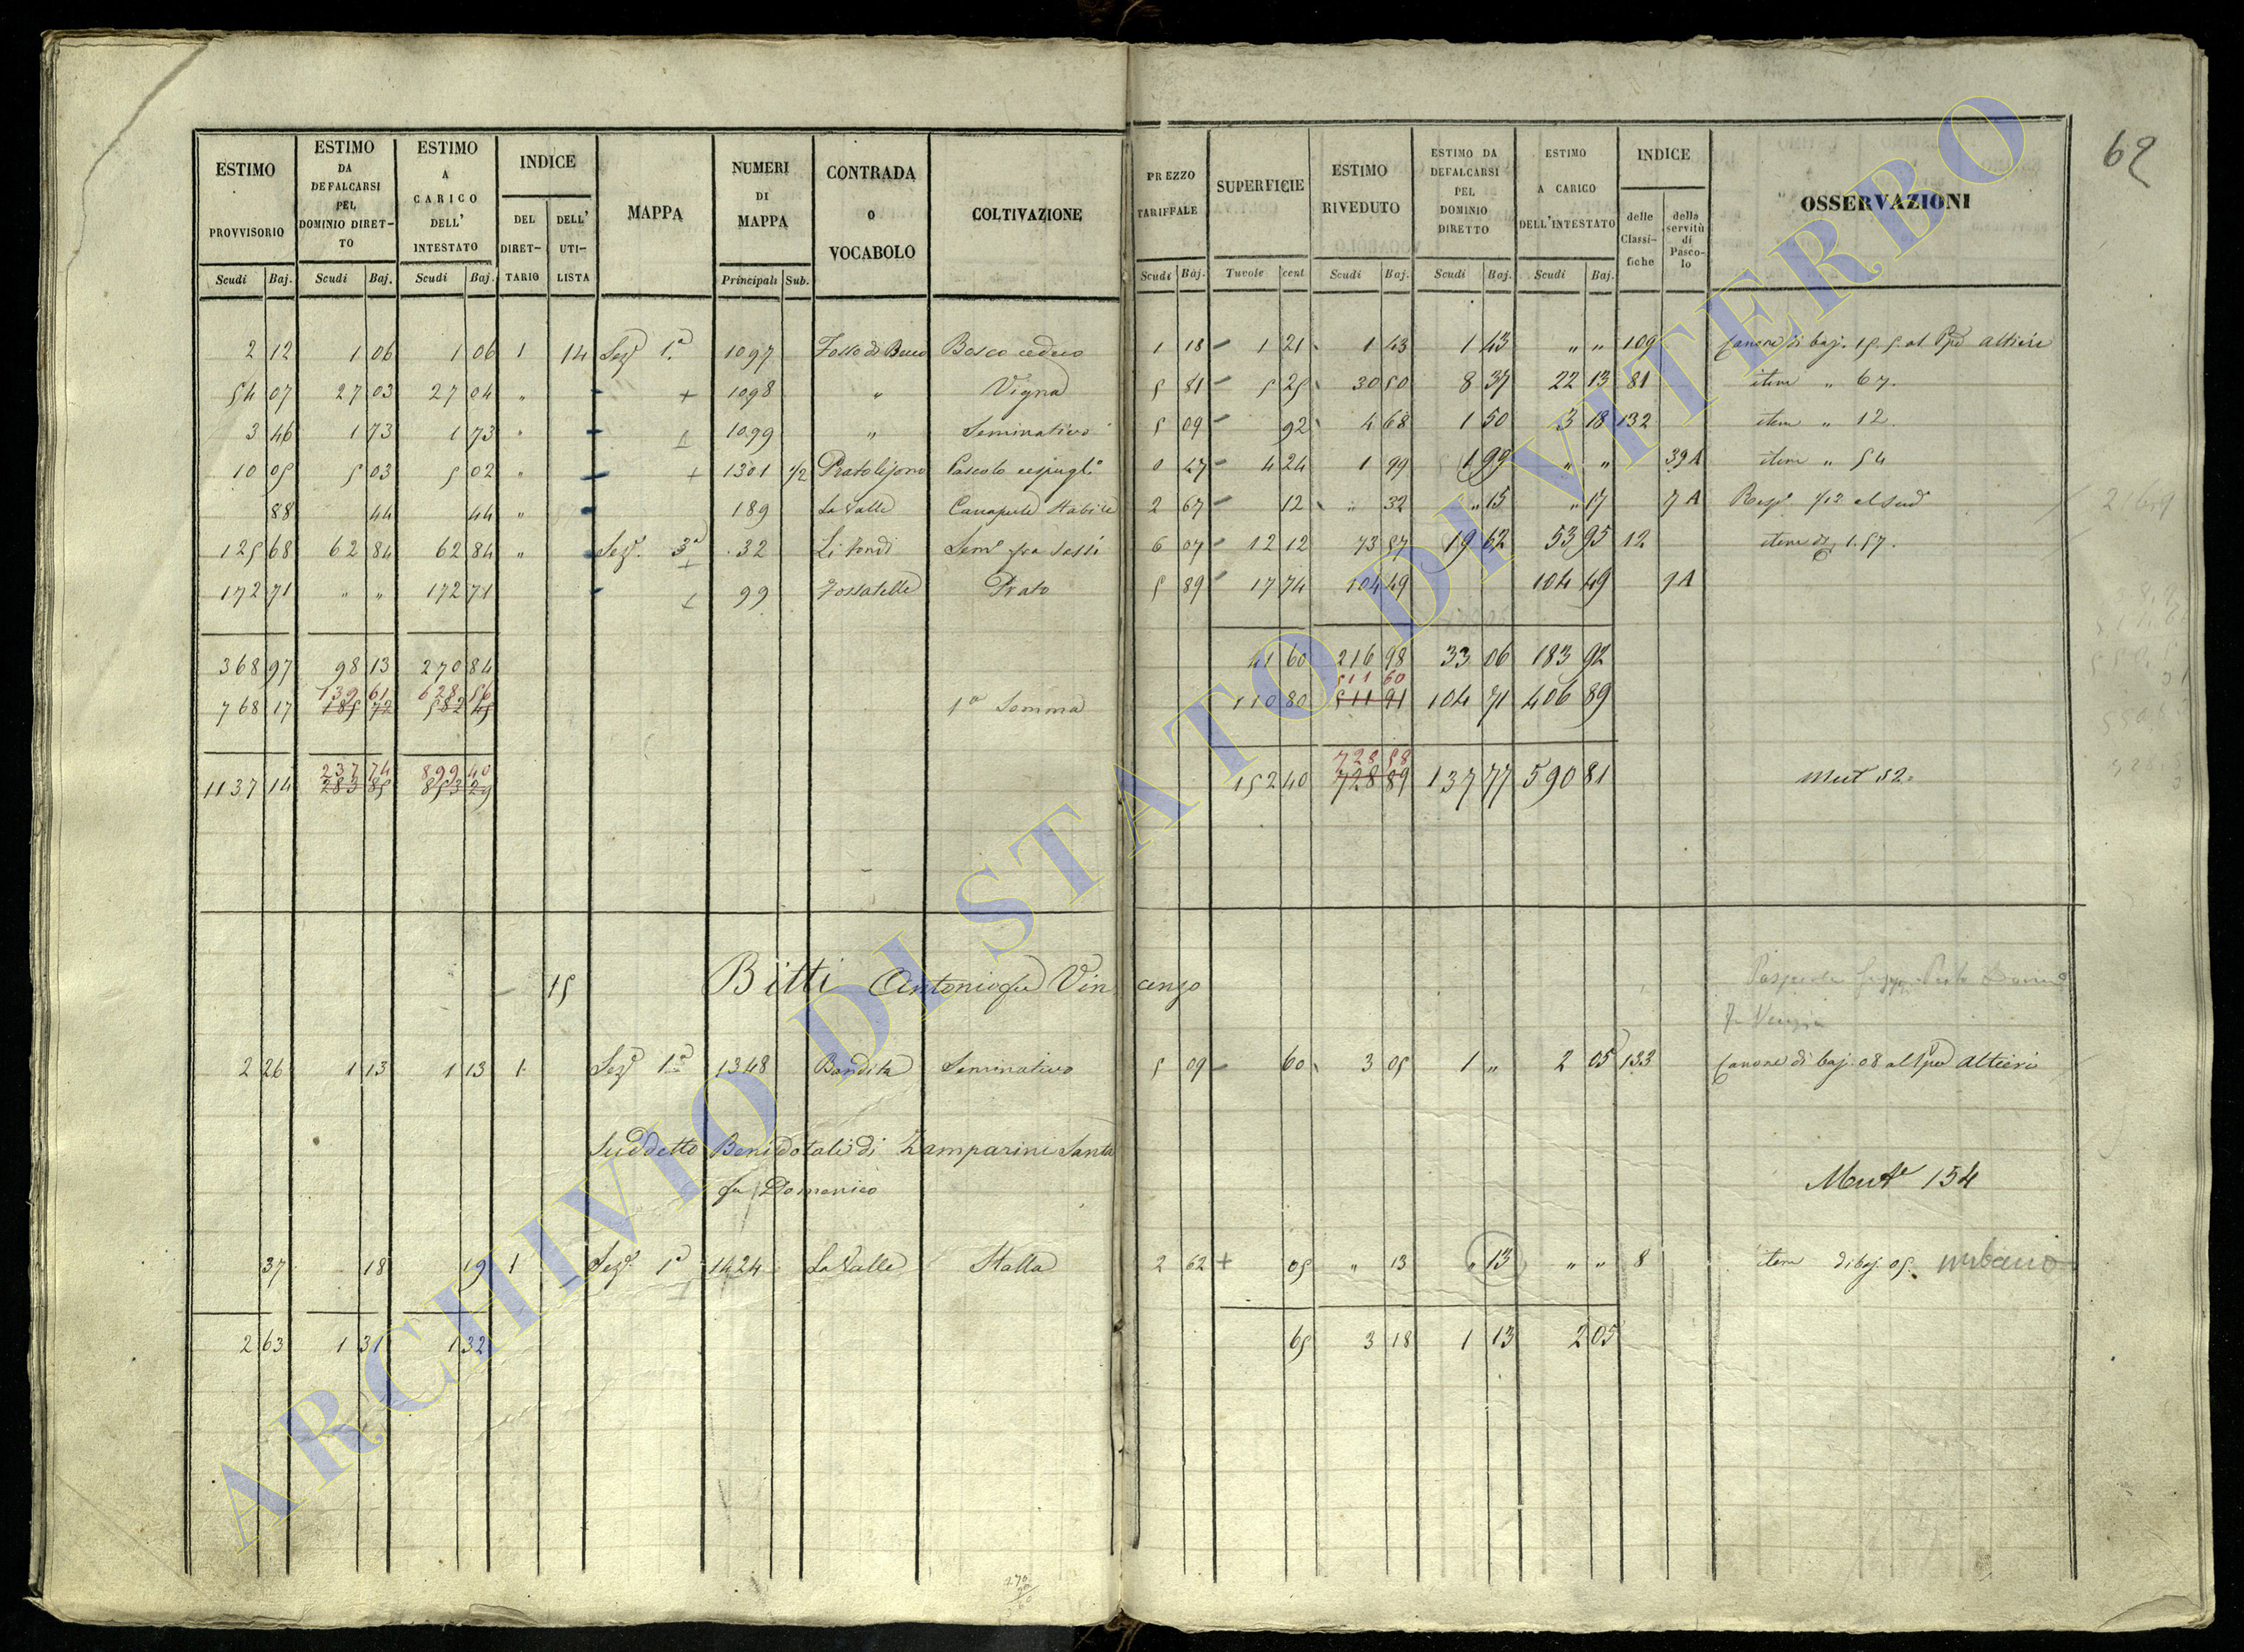 62
ESTIMO PROVVISORIO Scudi Baj.
ESTIMO DA DEFALCARSI PEL DOMINIO DIRETTO Scudi Baj.
ESTIMO A CARICO DELL' INTESTATO Scudi Baj.
INDICE DEL DIRETTARIO DELL' UTILISTA
MAPPA
NUMERI DI MAPPA Principali Sub.
CONTRADA o VOCABOLO
COLTIVAZIONE
PREZZO TARIFFALE Scudi Baj.
SUPERFICIE Tavole cent
ESTIMO RIVEDUTO Scudi Baj.
ESTIMO DA DEFALCARSI PEL DOMINIO DIRETTO Scudi Baj.
ESTIMO A CARICO DELL'INTESTATO Scudi Baj.
INDICE delle Classifiche della servitù di Pascolo
OSSERVAZIONI
2 12 1 06 1 06 1 14 Seze 1a 1097 Fosso di Bucco Bosco ceduo 1 18 1 21 1 43 1 43 " " 109 Canone di baj. 15.5. al Altieri
54 07 27 03 27 04 " + 1098 " Vigna 5 81 5 25 30 50 8 37 22 13 81 item " 67.
3 46 1 73 1 73 " + 1099 " Seminativo 5 09 92 4 68 1 50 3 18 132 item " 12.
10 05 5 03 5 02 " + 1301 1/2 Pascolo 0 47 4 24 1 99 1 99 " " 39 A item " 54
88 44 44 " 189 La Valle Canapule Stabile 2 67 12 " 32 " 15 " 17 7 A
125 68 62 84 62 84 " Sez. 3a 32 Li Fondi 6 07 12 12 73 57 19 62 53 95 12 item 1.57.
172 71 " " 172 71 + 99 Fossatelle Prato 5 89 17 74 104 49 104 49 7 A
368 97 98 13 270 84 41 60 216 98 33 06 183 92
139 61 628 56 511 60
768 17 185 72 582 45 1a Somma 110 80 511 91 104 71 406 89
237 74 899 40 728 58
1137 14 283 85 853 29 152 40 728 89 137 77 590 81 Mut 82
15 Bitti Antonio fu Vincenzo
2 26 1 13 1 13 1 Seze 1a 1348 Bandita Seminativo 5 09 60 3 05 1 " 2 05 133 Canone di baj. 08 al Altieri
Suddetto Beni Dotali di Zamparini Santa
fu Domenico
Mute 154
37 18 19 1 Seze 1a 1424 La Valle Stalla 2 62 + 05 " 13 " 13 " " 8 item di baj. 05. urbano
2 63 1 31 1 32 65 3 18 1 13 2 05
ARCHIVIO DI STATO DI VITERBO